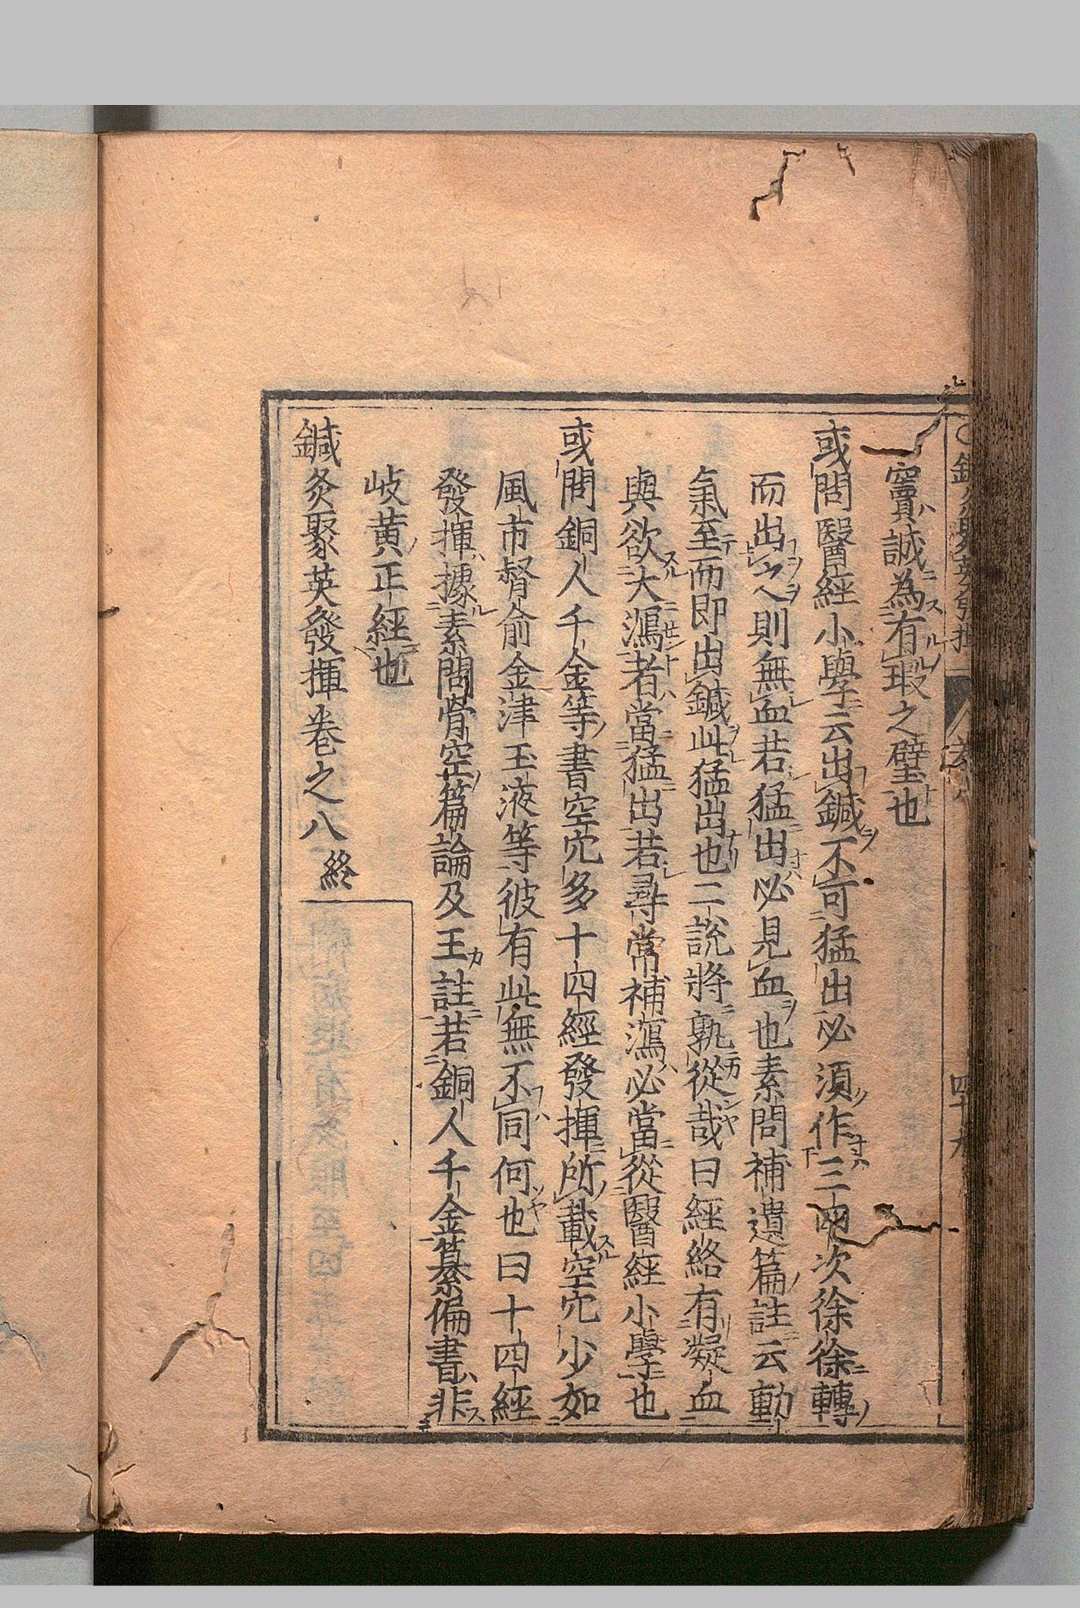 竇誠為有瑕之璧也
或問醫經小學云出鍼不可猛出必須作三四次徐徐轉
而出之則無血若猛出必見血也素問補遺篇註云動
氣至而即出鍼此猛出也二說將孰從哉曰經絡有凝血
與欲大瀉者當猛出若尋常補瀉必當從醫經小學也
或問銅人千金等書空穴多十四經發揮所載空穴少如
風市督俞金津玉液等彼有此無不同何也曰十四經
發揮據素問骨空篇論及王註若銅人千金纂偏書非
岐黃正經也
鍼灸聚英發揮卷之八 終